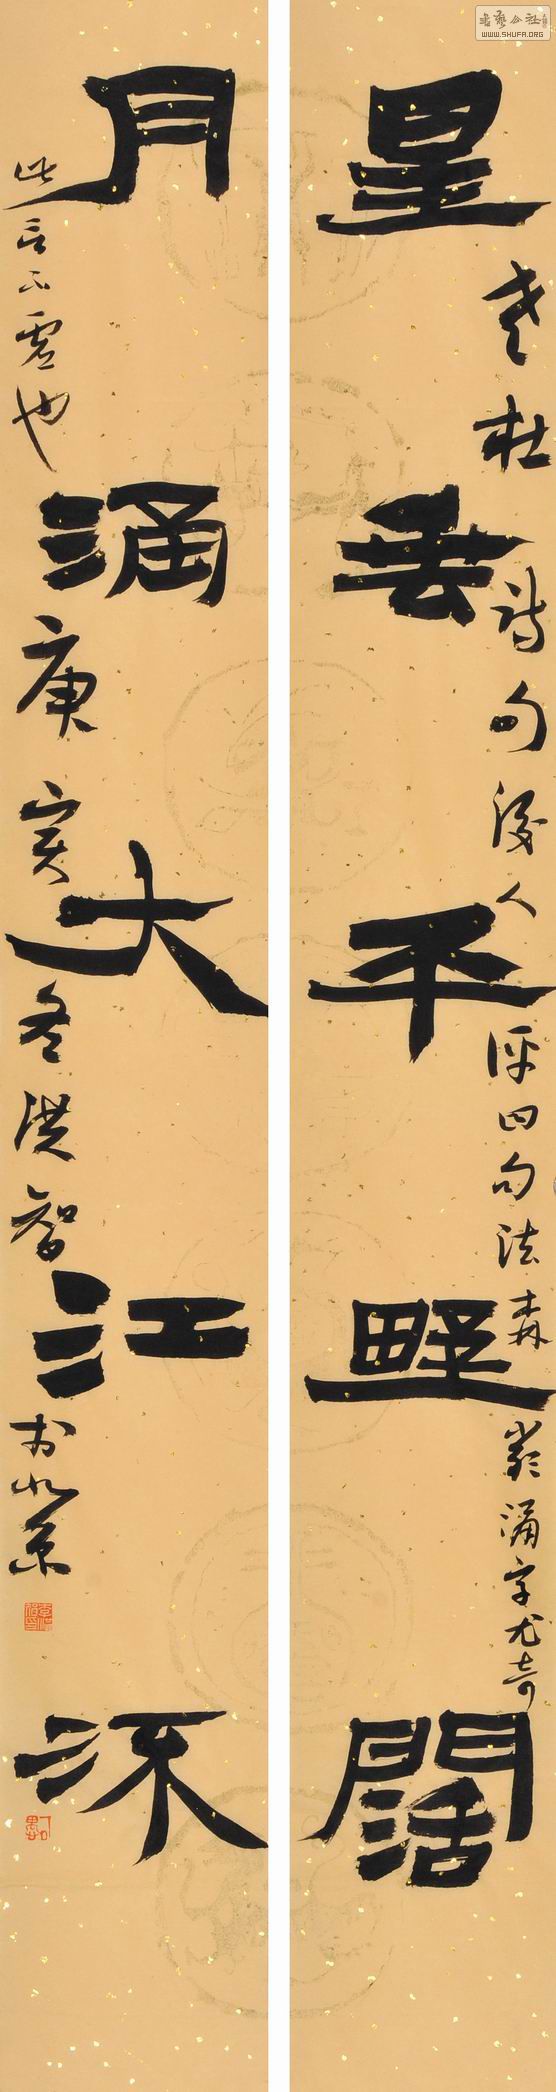 書藝公社
WWW.SHUFA.ORG
星垂平野闊
老杜詩句後人評曰句法森嚴涌字尤奇
月涌大江流
此言不虛也庚寅冬洪智於北京